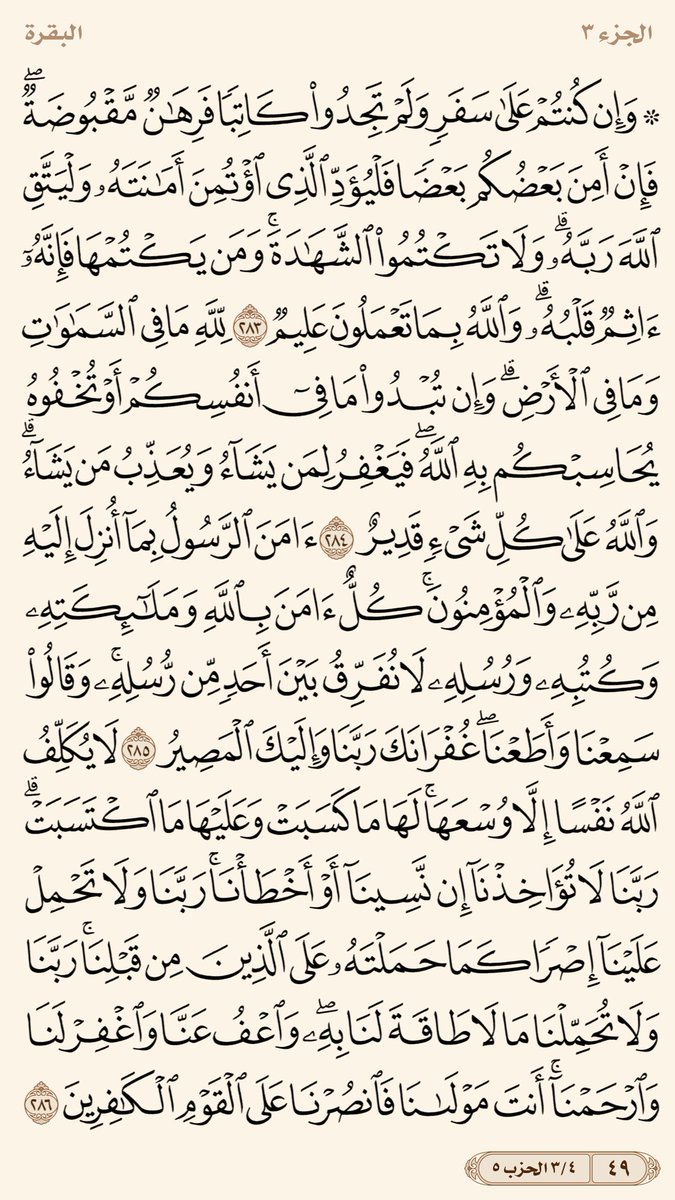 الجزء ٣ البقرة
۞ وَإِن كُنتُمْ عَلَىٰ سَفَرٍ وَلَمْ تَجِدُوا۟ كَاتِبًا فَرِهَـٰنٌ مَّقْبُوضَةٌ ۖ
فَإِنْ أَمِنَ بَعْضُكُم بَعْضًا فَلْيُؤَدِّ ٱلَّذِى ٱؤْتُمِنَ أَمَـٰنَتَهُۥ وَلْيَتَّقِ
ٱللَّهَ رَبَّهُۥ ۗ وَلَا تَكْتُمُوا۟ ٱلشَّهَـٰدَةَ ۚ وَمَن يَكْتُمْهَا فَإِنَّهُۥٓ
ءَاثِمٌ قَلْبُهُۥ ۗ وَٱللَّهُ بِمَا تَعْمَلُونَ عَلِيمٌ ٢٨٣ لِّلَّهِ مَا فِى ٱلسَّمَـٰوَٰتِ
وَمَا فِى ٱلْأَرْضِ ۗ وَإِن تُبْدُوا۟ مَا فِىٓ أَنفُسِكُمْ أَوْ تُخْفُوهُ
يُحَاسِبْكُم بِهِ ٱللَّهُ ۖ فَيَغْفِرُ لِمَن يَشَآءُ وَيُعَذِّبُ مَن يَشَآءُ ۗ
وَٱللَّهُ عَلَىٰ كُلِّ شَىْءٍ قَدِيرٌ ٢٨٤ ءَامَنَ ٱلرَّسُولُ بِمَآ أُنزِلَ إِلَيْهِ
مِن رَّبِّهِۦ وَٱلْمُؤْمِنُونَ ۚ كُلٌّ ءَامَنَ بِٱللَّهِ وَمَلَـٰٓئِكَتِهِۦ
وَكُتُبِهِۦ وَرُسُلِهِۦ لَا نُفَرِّقُ بَيْنَ أَحَدٍ مِّن رُّسُلِهِۦ ۚ وَقَالُوا۟
سَمِعْنَا وَأَطَعْنَا ۖ غُفْرَانَكَ رَبَّنَا وَإِلَيْكَ ٱلْمَصِيرُ ٢٨٥ لَا يُكَلِّفُ
ٱللَّهُ نَفْسًا إِلَّا وُسْعَهَا ۚ لَهَا مَا كَسَبَتْ وَعَلَيْهَا مَا ٱكْتَسَبَتْ ۗ
رَبَّنَا لَا تُؤَاخِذْنَآ إِن نَّسِينَآ أَوْ أَخْطَأْنَا ۚ رَبَّنَا وَلَا تَحْمِلْ
عَلَيْنَآ إِصْرًا كَمَا حَمَلْتَهُۥ عَلَى ٱلَّذِينَ مِن قَبْلِنَا ۚ رَبَّنَا
وَلَا تُحَمِّلْنَا مَا لَا طَاقَةَ لَنَا بِهِۦ ۖ وَٱعْفُ عَنَّا وَٱغْفِرْ لَنَا
وَٱرْحَمْنَآ ۚ أَنتَ مَوْلَىٰنَا فَٱنصُرْنَا عَلَى ٱلْقَوْمِ ٱلْكَـٰفِرِينَ ٢٨٦
٤٩ ٣/٤ الحزب ٥